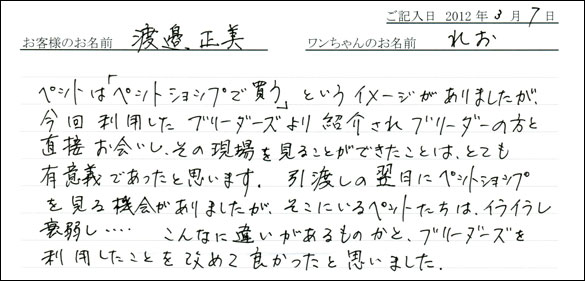 ご記入日 2012年3月7日
お客様のお名前 渡邉 正美 ワンちゃんのお名前 れお
ペットは「ペットショップで買う」というイメージがありましたが、
今回利用したブリーダーズより紹介されブリーダーの方と
直接お会いし、その現場を見ることができたことは、とても
有意義であったと思います。 引渡しの翌日にペットショップ
を見る機会がありましたが、そこにいるペットたちは、イライラし
衰弱し‥‥ こんなに違いがあるものかと、ブリーダーズを
利用したことを改めて良かったと思いました.